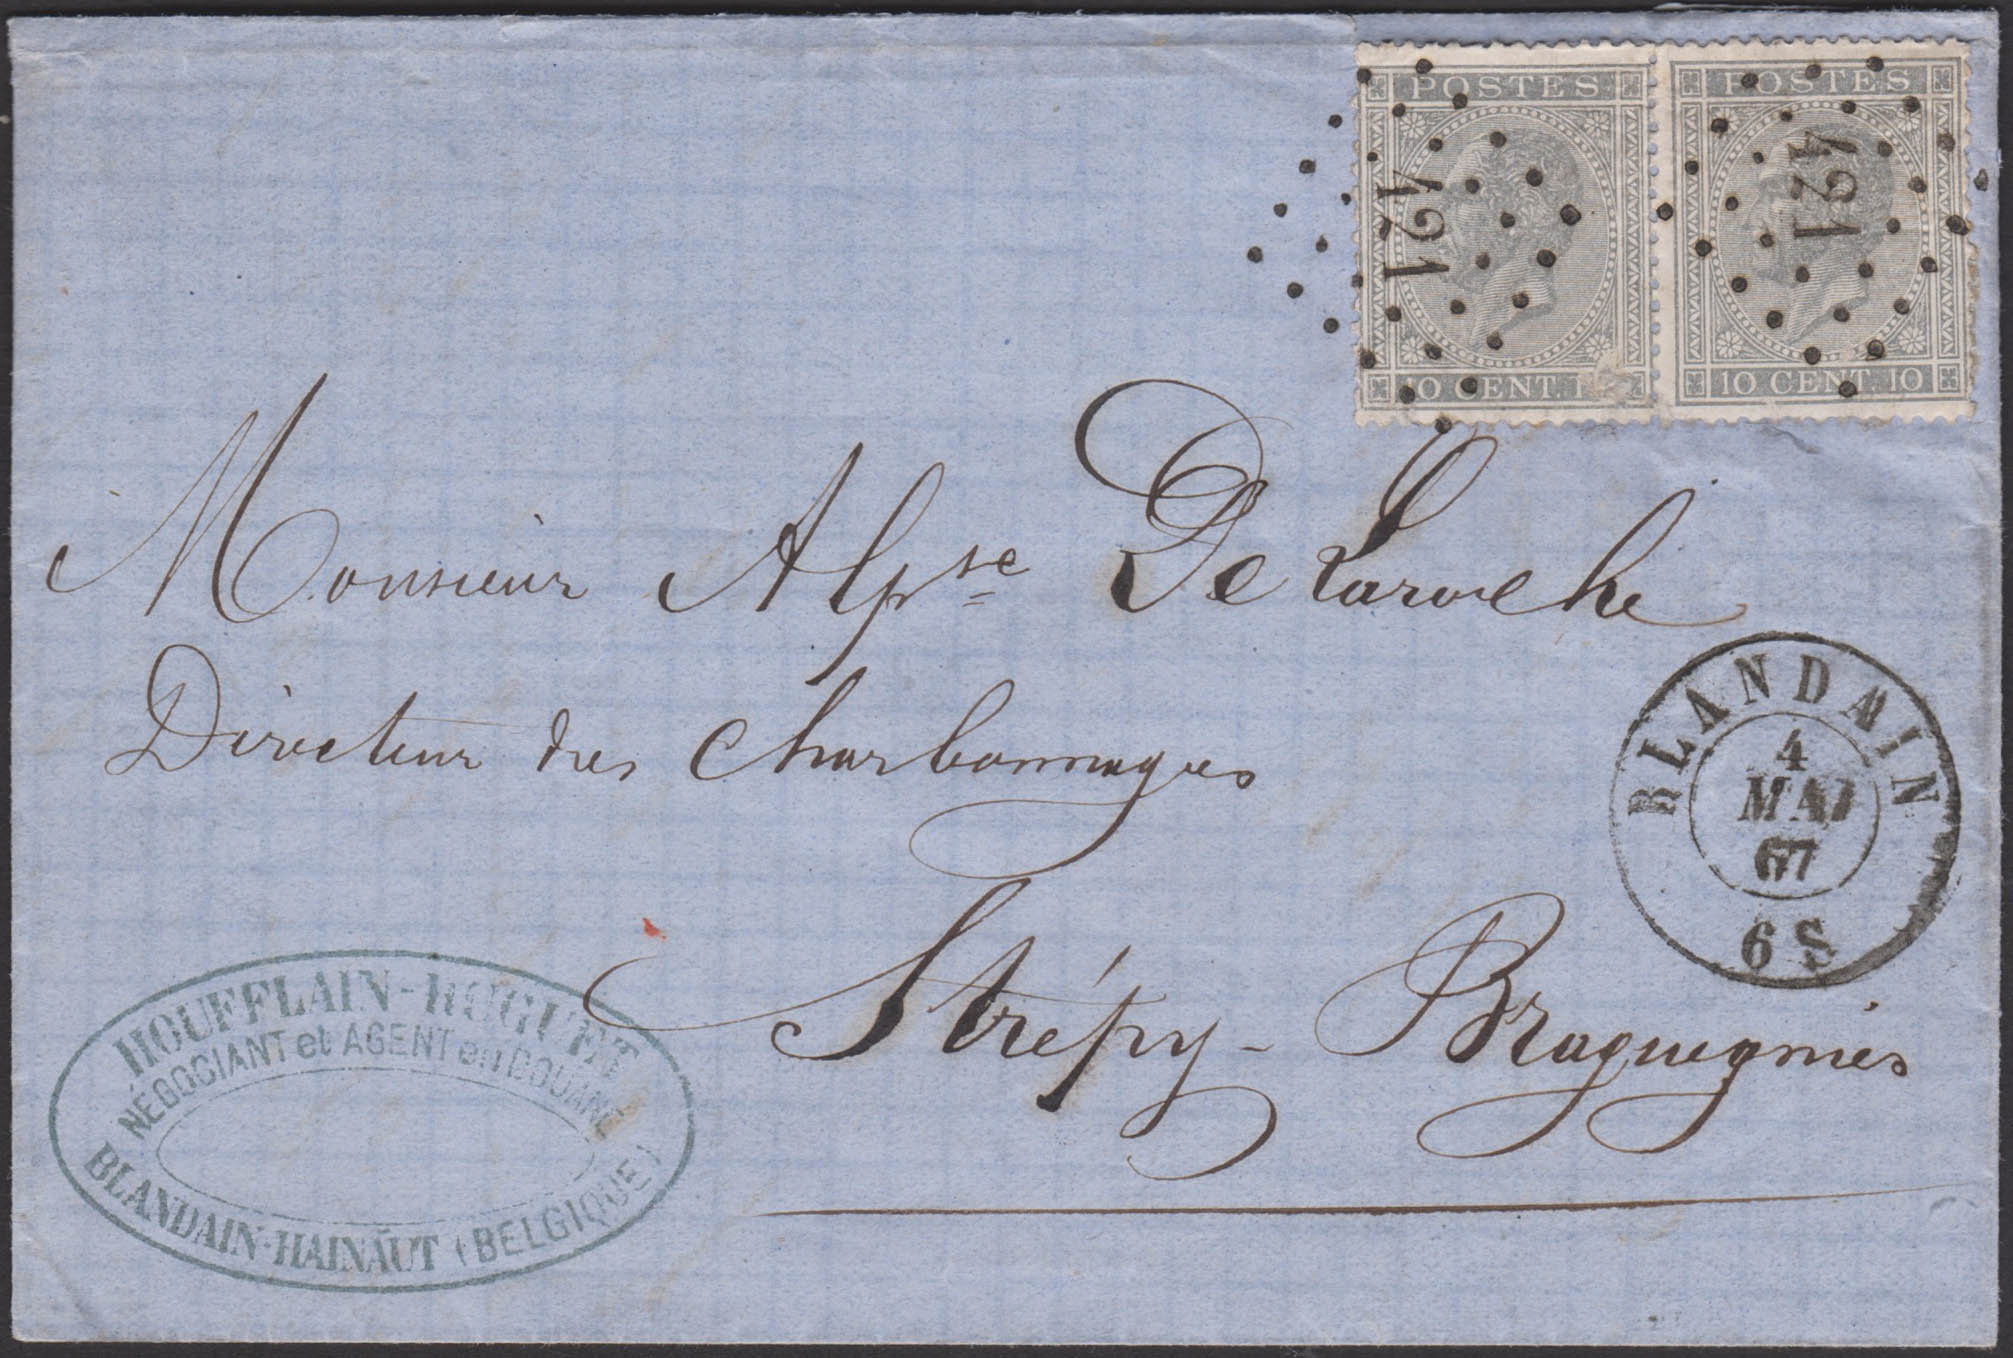 POSTES
10 CENT. 1
421
POSTES
10 CENT. 10
421
Monsieur Alpse De Laroche
Directeur des Charbonnages
Strépy-Braquegnies
BLANDAIN
4
MAI
67
6 S
HOUFFLAIN-HUGUET
NÉGOCIANT et AGENT en DOUANE
BLANDAIN-HAINAUT (BELGIQUE)